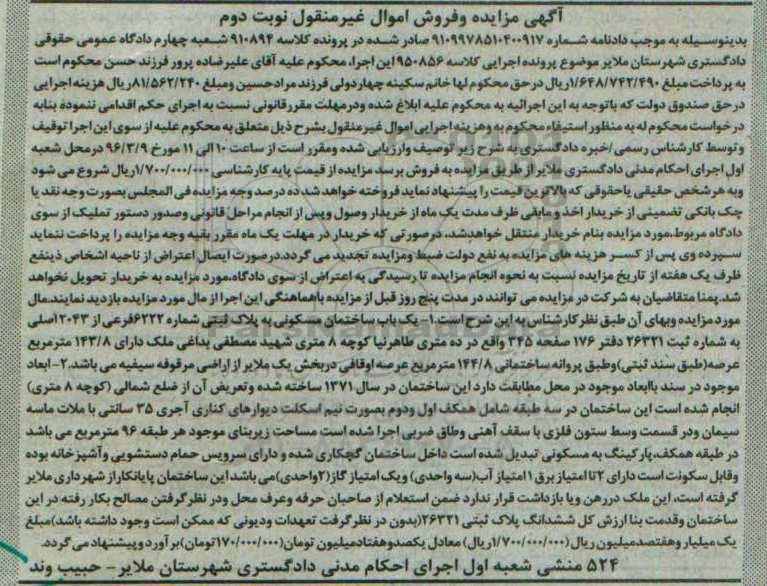 آگهی مزایده وفروش اموال غیرمنقول نوبت دوم
بدینوسیله به موجب دادنامه شماره ۹۱۰۹۹۷۸۵۱۰۴۰۰۹۱۷ صادر شده در پرونده کلاسه ۹۱۰۸۹۴ شعبه چهارم دادگاه عمومی حقوقی
دادگستری شهرستان ملایر موضوع پرونده اجرایی کلاسه ۹۵۰۸۵۶ این اجرا، محکوم علیه آقای علیرضاده پرور فرزند حسن محکوم است
به پرداخت مبلغ ۱/۶۴۸/۷۴۲/۴۹۰ریال درحق محکوم لها خانم سکینه چهاردولی فرزند مرادحسین ومبلغ ۸۱/۵۶۲/۲۴۰ریال هزینه اجرایی
درحق صندوق دولت که باتوجه به این اجرائیه به محکوم علیه ابلاغ شده ودرمهلت مقررقانونی نسبت به اجرای حکم اقدامی ننموده بنابه
درخواست محکوم له به منظور استیفاء محکوم به وهزینه اجرایی اموال غیرمنقول بشرح ذیل متعلق به محکوم علیه از سوی این اجرا توقیف
وتوسط کارشناس رسمی/خبره دادگستری به شرح زیر توصیف وارزیابی شده ومقرر است از ساعت ۱۰ الی ۱۱ مورخ ۹۶/۳/۹ درمحل شعبه
اول اجرای احکام مدنی دادگستری ملایر از طریق مزایده به فروش برسد مزایده از قیمت پایه کارشناسی ۱/۷۰۰/۰۰۰/۰۰۰ریال شروع می شود
وبه هرشخص حقیقی یاحقوقی که بالاترین قیمت را پیشنهاد نماید فروخته خواهد شد ده درصد وجه مزایده فی المجلس بصورت وجه نقد یا
چک بانکی تضمینی از خریدار اخذ و مابقی ظرف مدت یک ماه از خریدار وصول وپس از انجام مراحل قانونی وصدور دستور تملیک از سوی
دادگاه مربوط،مورد مزایده بنام خریدار منتقل خواهدشد، درصورتی که خریدار در مهلت یک ماه مقرر بقیه وجه مزایده را پرداخت ننماید
سپرده وی پس از کسر هزینه های مزایده به نفع دولت ضبط ومزایده تجدید می گردد.درصورت ایصال اعتراض از ناحیه اشخاص ذینفع
ظرف یک هفته از تاریخ مزایده نسبت به نحوه انجام مزایده تا رسیدگی به اعتراض از سوی دادگاه،مورد مزایده به خریدار تحویل نخواهد
شد.ضمنا متقاضیان به شرکت در مزایده می توانند در مدت پنج روز قبل از مزایده باهماهنگی این اجرا از مال مورد مزایده بازدید نمایند.مال
مورد مزایده وبهای آن طبق نظر کارشناس به این شرح است:۱- یک باب ساختمان مسکونی به پلاک ثبتی شماره ۶۲۲۲فرعی از ۱۲۰۴۳اصلی
به شماره ثبت ۲۶۳۲۱ دفتر ۱۷۶ صفحه ۳۴۵ واقع در ده متری طاهرنیا کوچه ۸ متری شهید مصطفی یداغی ملک دارای ۱۴۳/۸ مترمربع
عرصه(طبق سند ثبتی)وطبق پروانه ساختمانی ۱۴۴/۸ مترمربع عرصه اوقافی دربخش یک ملایر از اراضی مرقوفه سیفیه می باشد،۲-ابعاد
موجود در سند باابعاد موجود در محل مطابقت دارد این ساختمان در سال ۱۳۷۱ ساخته شده وتعریض آن از ضلع شمالی (کوچه ۸ متری)
انجام شده است این ساختمان در سه طبقه شامل همکف اول ودوم بصورت نیم اسکلت دیوارهای کناری آجری ۳۵ سانتی با ملات ماسه
سیمان ودر قسمت وسط ستون فلزی با سقف آهنی وطاق ضربی اجرا شده است مساحت زیربنای موجود هر طبقه ۹۶ مترمربع می باشد
در طبقه همکف،پارکینگ به مسکونی تبدیل شده است داخل ساختمان گچکاری شده و دارای سرویس حمام دستشویی وآشپزخانه بوده
وقابل سکونت است دارای ۲تا امتیاز برق ۱ امتیاز آب(سه واحدی) ویک امتیاز گاز(۲واحدی)می باشد،این ساختمان پایانکاراز شهرداری ملایر
گرفته است، این ملک دررهن ویا بازداشت قرار ندارد ضمن استعلام از صاحبان حرفه وعرف محل ودر نظرگرفتن مصالح بکار رفته در این
ساختمان وقدمت بنا ارزش کل ششدانگ پلاک ثبتی ۲۶۳۲۱(بدون در نظرگرفت تعهدات ودیونی که ممکن است وجود داشته باشد)مبلغ
یک میلیار وهفتصدمیلیون ریال (۱/۷۰۰/۰۰۰/۰۰۰ریال) معادل یکصدوهفتادمیلیون تومان(۱۷۰/۰۰۰/۰۰۰تومان)برآورد وپیشنهاد می گردد.
۵۲۴ منشی شعبه اول اجرای احکام مدنی دادگستری شهرستان ملایر- حبیب وند